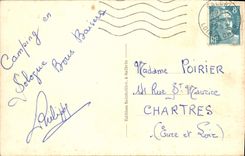 Camping en
Sologne
Bons Baisers
Madame POIRIER
41 Rue St Maurice
CHARTRES
(Eure et Loir)